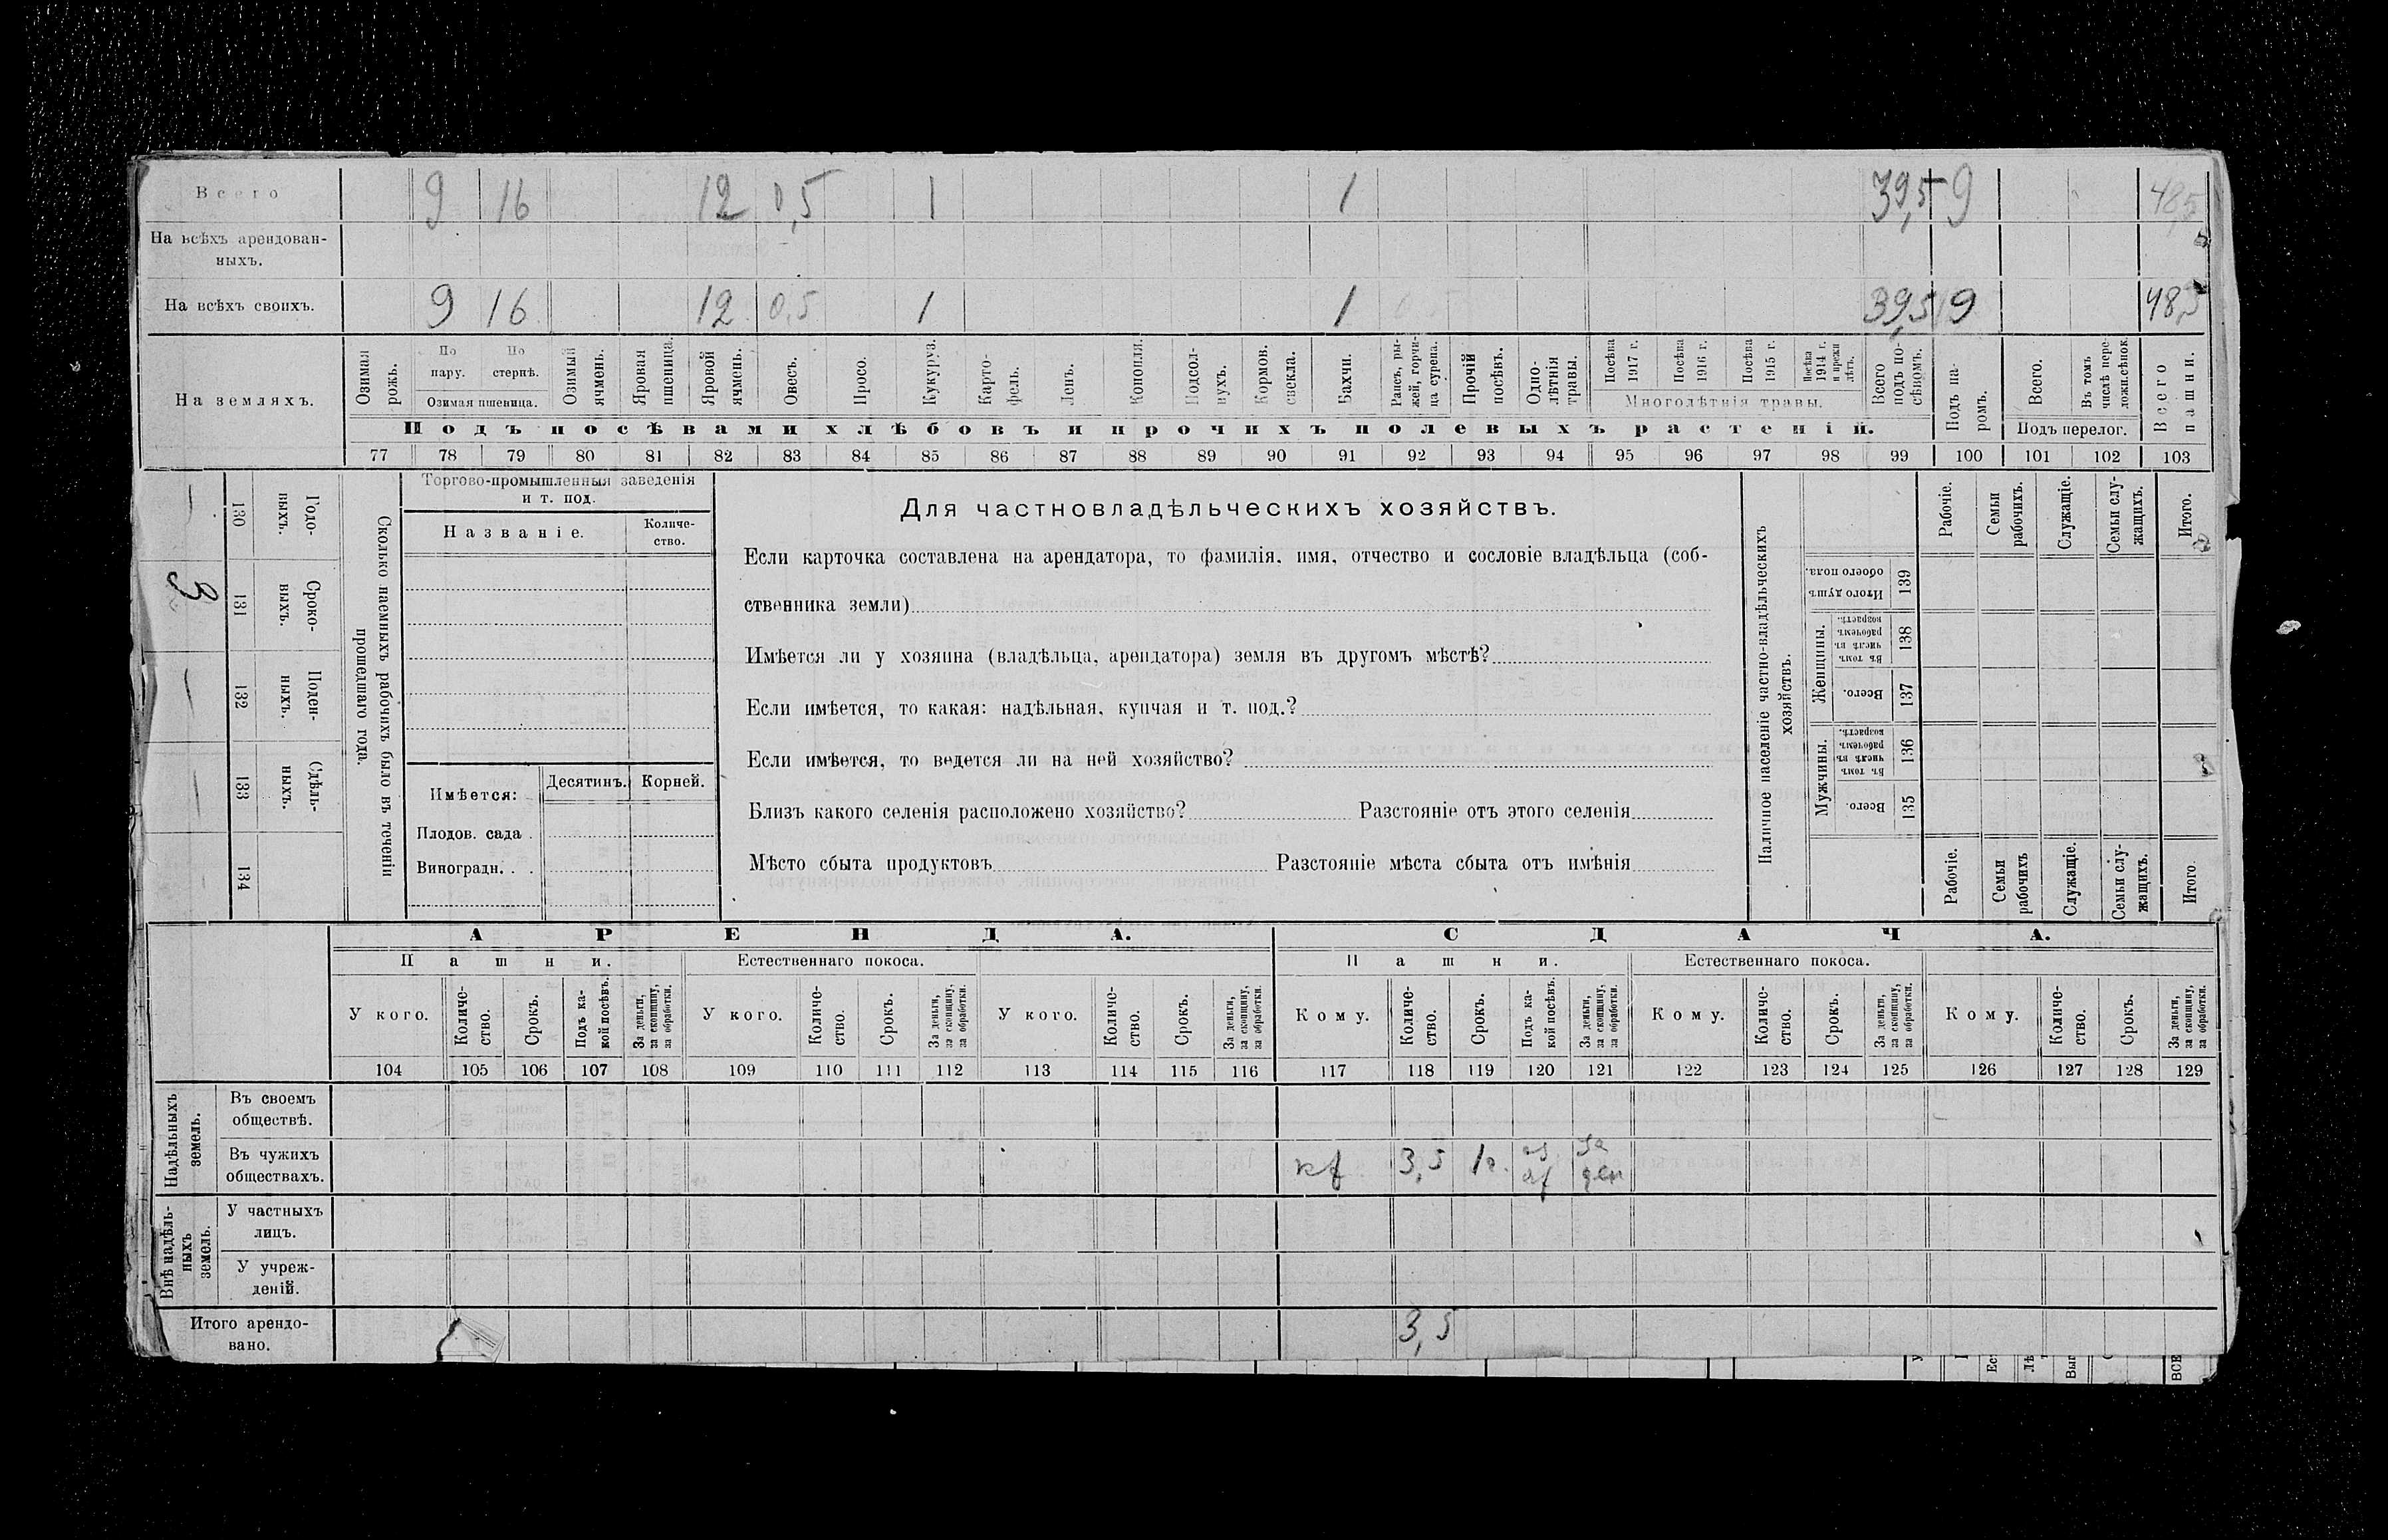 Всего 9 16 12 0,5 1 1 39,5 9 48,5
На всѣхъ арендован-
ныхъ.
На всѣхъ своихъ. 9 16 12 0,5 1 1 39,5 9 48,5
На земляхъ.
Озимая рожь.
По пару.
По стернѣ.
Озимая пшеница.
Озимый ячмень.
Яровая пшеница.
Яровой ячмень.
Овесъ.
Просо.
Кукуруз.
Карто-
фель.
Ленъ.
Конопля.
Подсол-
нухъ.
Кормов. свекла.
Бахчи.
Рапсъ, ры-
жей, горчи-
ца сурепа.
Прочій посѣвъ.
Одно-
лѣтнія травы.
Посѣва 1917 г.
Посѣва 1916 г.
Посѣва 1915 г.
Посѣва 1914 г. и прежн лѣтъ.
Многолѣтнія травы.
Всего подъ по-
сѣвомъ.
Подъ па-
ромъ.
Всего.
Въ томъ числѣ пере-
ложн.сѣнок.
Подъ перелог.
Всего пашни.
Подъ посѣвами хлѣбовъ и прочихъ полевыхъ растеній.
77 78 79 80 81 82 83 84 85 86 87 88 89 90 91 92 93 94 95 96 97 98 99 100 101 102 103
130 Годо-
выхъ.
3 131 Сроко-
выхъ.
132 Поден-
ныхъ.
133 Сдѣль-
ныхъ.
134
Сколько наемныхъ рабочихъ было въ теченіи
прошедшаго года.
Торгово-промышленныя заведенія
и т. под.
Названіе.
Количе-
ство.
Имѣется: Десятинъ. Корней.
Плодов. сада .
Виноградн. . .
Для частновладѣльческихъ хозяйствъ.
Если карточка составлена на арендатора, то фамилія, имя, отчество и сословіе владѣльца (соб-
ственника земли)
Имѣется ли у хозяина (владѣльца, арендатора) земля въ другомъ мѣстѣ?
Если имѣется, то какая: надѣльная, купчая и т. под.?
Если имѣется, то ведется ли на ней хозяйство?
Близъ какого селенія расположено хозяйство? Разстояніе отъ этого селенія
Мѣсто сбыта продуктовъ Разстояніе мѣста сбыта отъ имѣнія
Наличное населеніе частно-владѣльческихъ
хозяйствъ.
Рабочіе.
Семьи рабочихъ.
Служащіе.
Семьи слу-
жащихъ.
Итого.
Итого душъ обоего пола. 139
Женщины.
Въ томъ числѣ въ рабочемъ возрастѣ. 138
Всего. 137
Мужчины.
Въ томъ числѣ въ рабочемъ возрастѣ. 136
Всего. 135
Рабочіе.
Семьи рабочихъ
Служащіе.
Семьи слу-
жащихъ.
Итого
АРЕНДА. СДАЧА.
Пашни. Естественнаго покоса. Пашни. Естественнаго покоса.
У кого.
Количе-
ство.
Срокъ.
Подъ ка-
кой посѣвъ.
За деньги, за скопщину, за обработки.
У кого.
Количе-
ство.
Срокъ.
За деньги, за скопщину, за обработки.
У кого.
Количе-
ство.
Срокъ.
За деньги, за скопщину, за обработки.
Кому.
Количе-
ство.
Срокъ.
Подъ ка-
кой посѣвъ.
За деньги, за скопщину, за обработки.
Кому.
Количе-
ство.
Срокъ.
За деньги, за скопщину, за обработки.
Кому.
Количе-
ство.
Срокъ.
За деньги, за скопщину, за обработки.
104 105 106 107 108 109 110 111 112 113 114 115 116 117 118 119 120 121 122 123 124 125 126 127 128 129
Надѣльныхъ земель.
Въ своемъ
обществѣ.
Въ чужихъ
обществахъ. 3,5 1г. за ден
Внѣ надѣль-
ныхъ земель.
У частныхъ
лицъ.
У учреж-
деній.
Итого арендо-
вано. 3,5